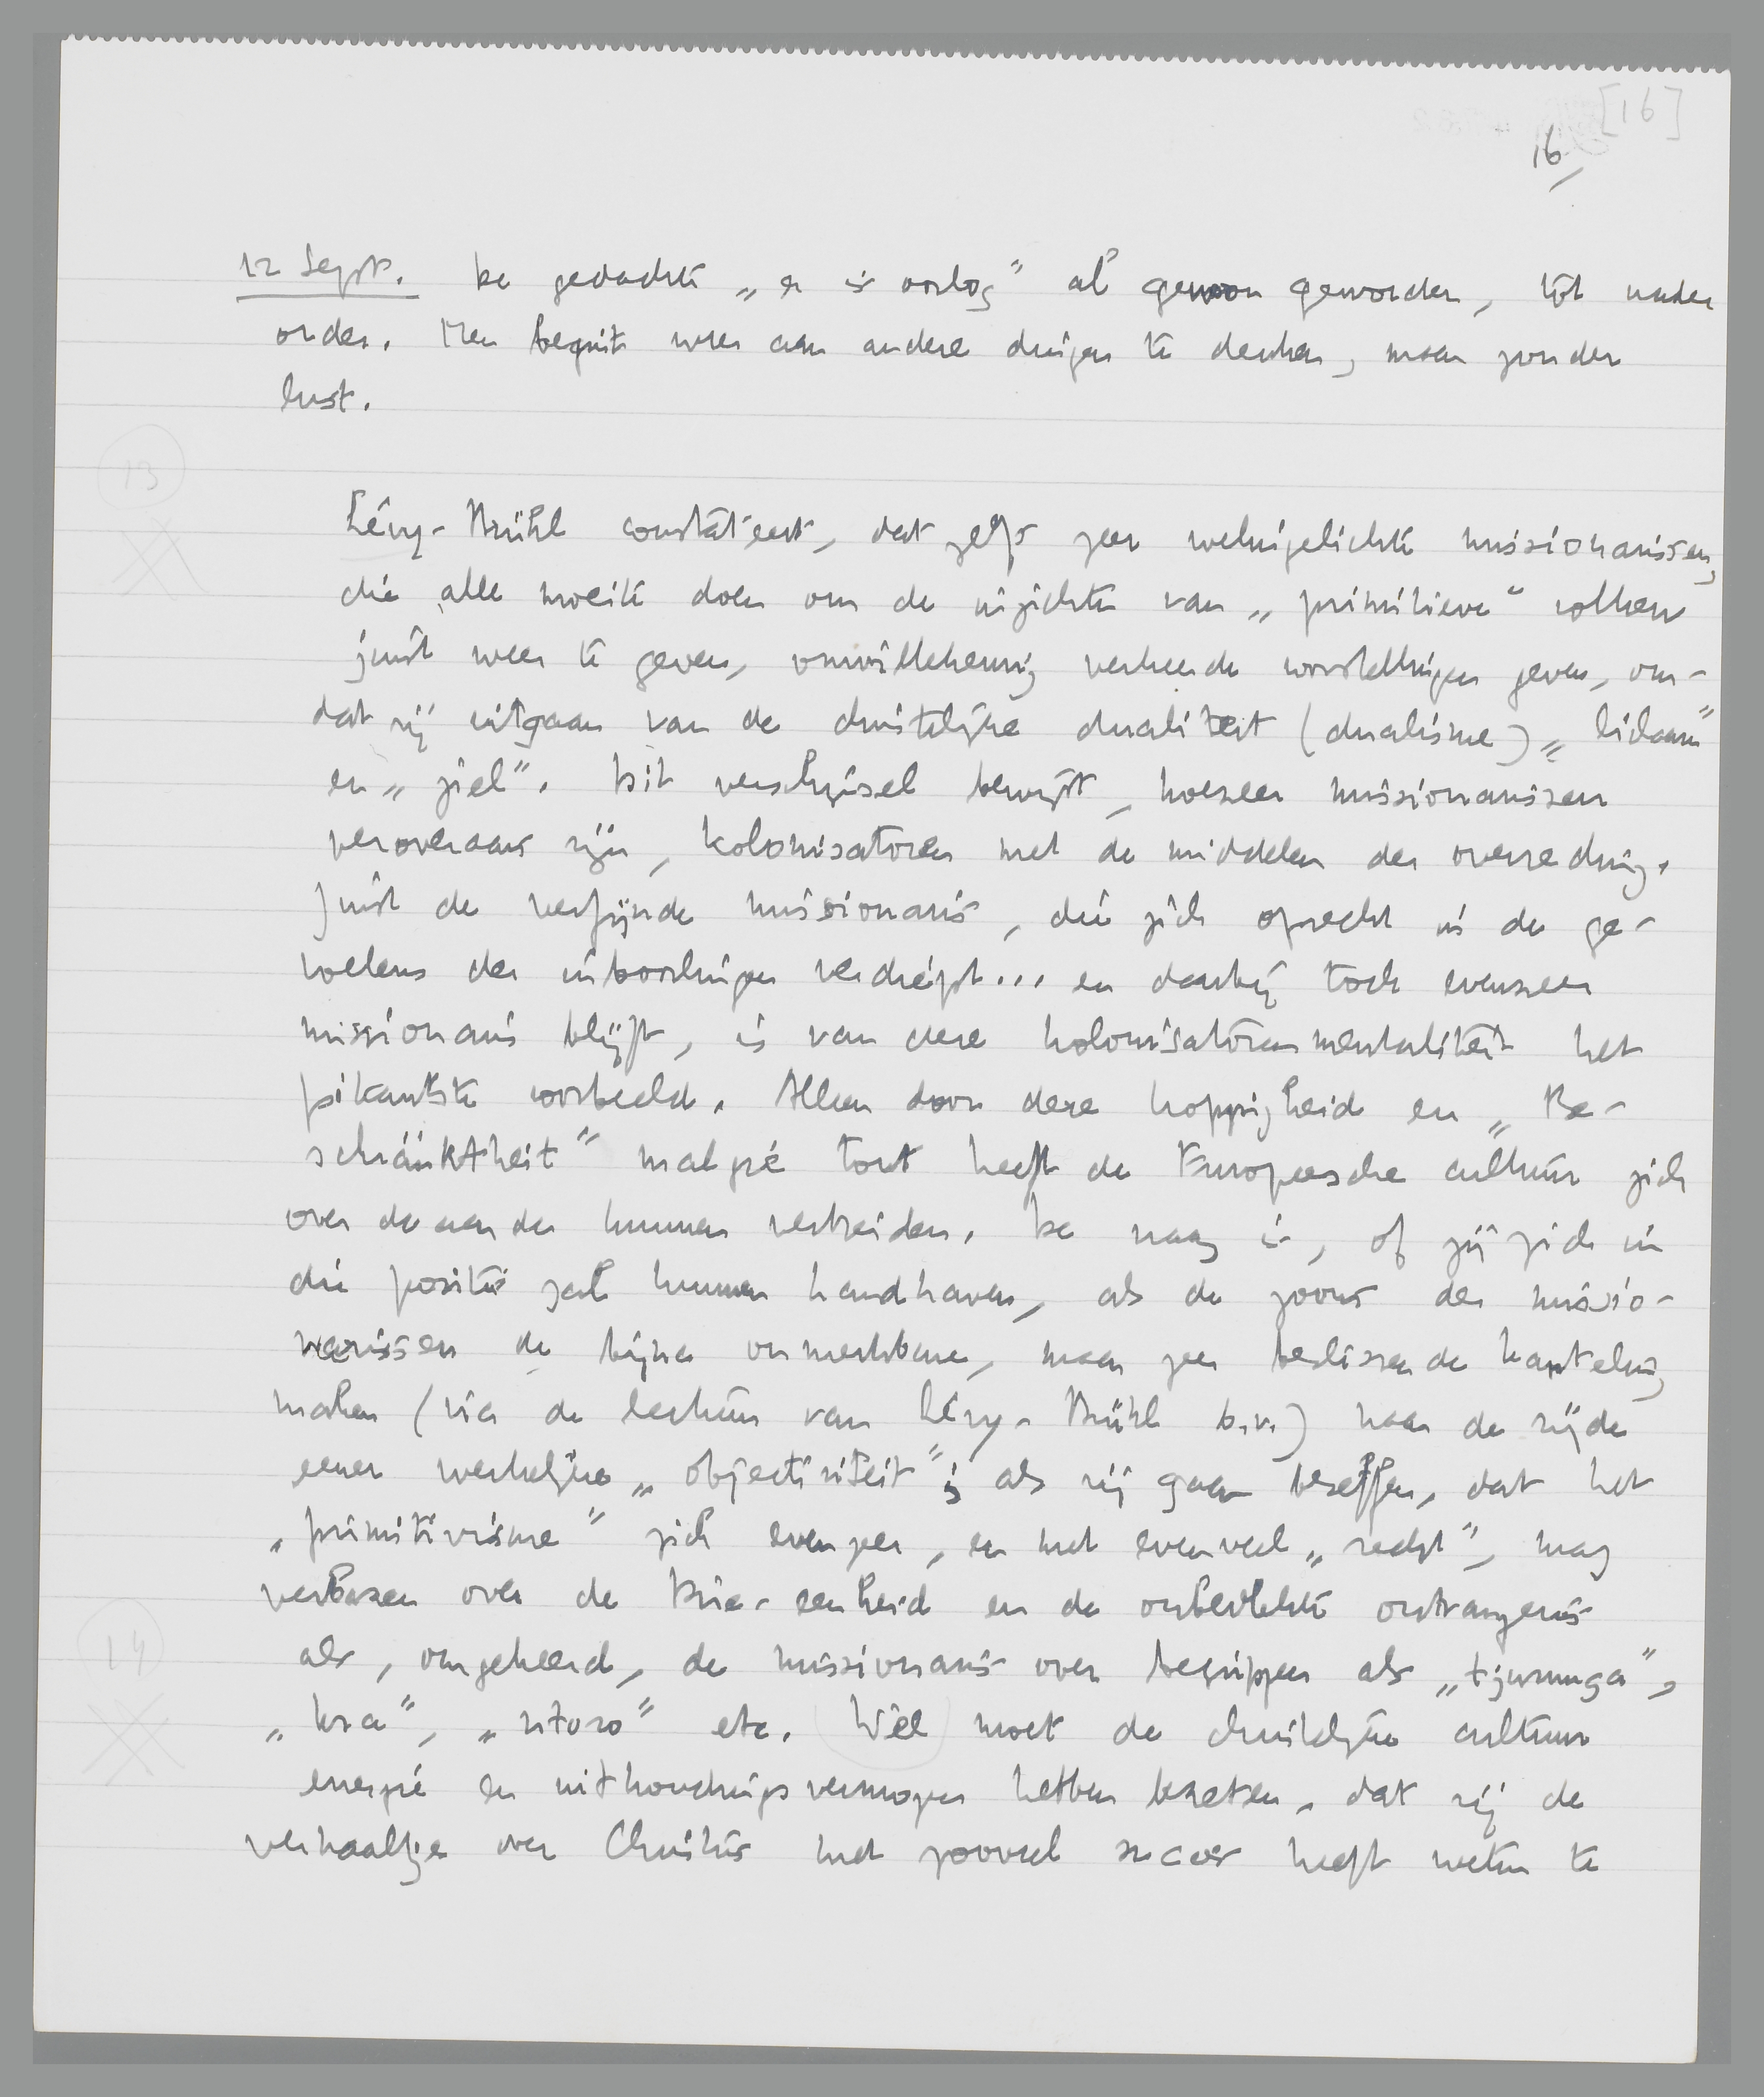 [16]
16
12 Sept. De gedachte „er is oorlog” al gewoon geworden, tot nader
order. Men begint weer aan andere dingen te denken, maar zonder
lust.
13
Lévy-Brühl constateert, dat zelfs zeer welingelichte missionarissen,
die alle moeite doen om de inzichten van „primitieve” volken
juist weer te geven, onwillekeurig verkeerde voorstellingen geven, om-
dat zij uitgaan van de christelijke dualiteit (dualisme) „lichaam”
en „ziel”. Dit verschijnsel bewijst, hoezeer missionarissen
veroveraars zijn, kolonisatoren met de middelen der overreding.
Juist de verfijnde missionaris, die zich oprecht in de ge-
voelens der inboorlingen verdiept... en daarbij toch evenzeer
missionaris blijft, is van deze kolonisatorenmentaliteit het
pikantste voorbeeld. Alleen door deze koppigheid en „Be-
schränktheit” malgré tout heeft de Europeesche cultuur zich
over de aarde kunnen verbreiden. De vraag is, of zij zich in
die positie zal kunnen handhaven, als de zoons der missio-
narissen de bijna onmerkbare, maar zeer beslissende kanteling
maken (via de lectuur van Lévy-Brühl b.v.) naar de zijde
eener werkelijke „objectiviteit”; als zij gaan beseffen, dat het
„primitivisme” zich evenzeer, en met evenveel „recht”, mag
verbazen over de Drie-eenheid en de onbevlekte ontvangenis
als, omgekeerd, de missionaris over begrippen als „tjurunga”,
14
„kra”, „ntoro” etc. Wèl moet de christelijke cultuur
energie en uithoudingsvermogen hebben bezeten, dat zij de
verhaaltjes over Christus met zooveel succes heeft weten te